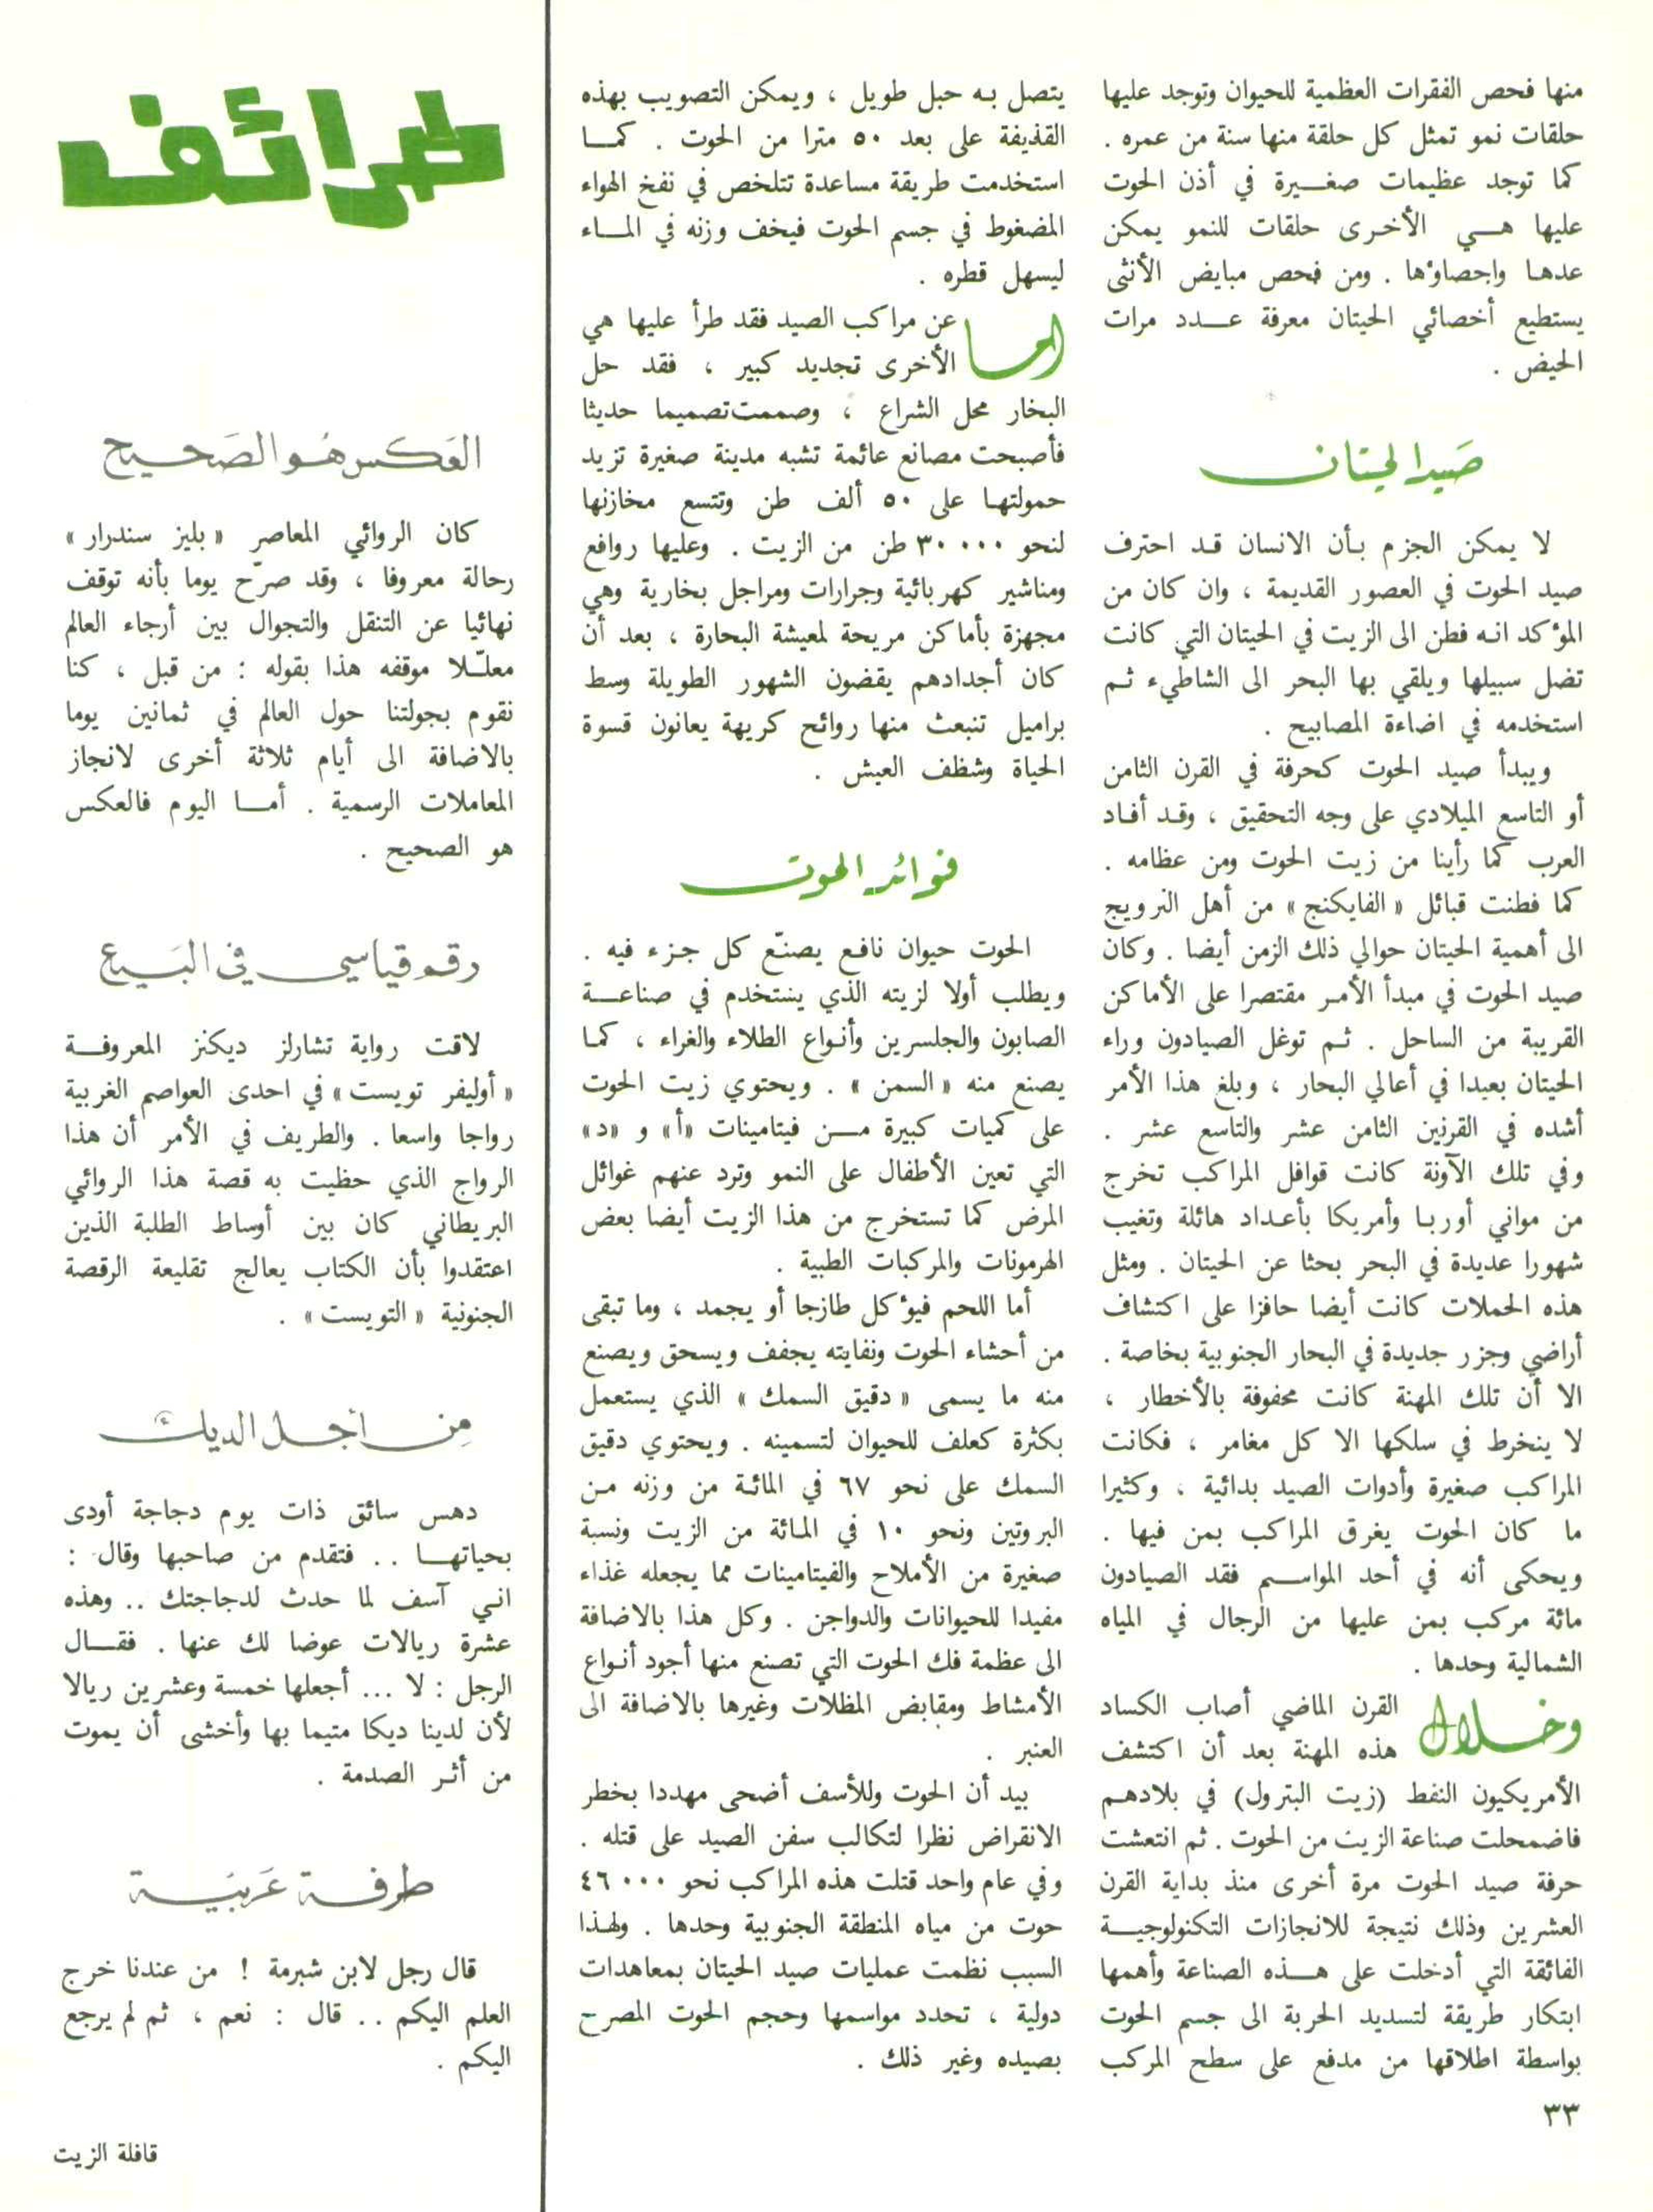 منها فحص الفقرات العظمية للحيوان وتوجد عليها
حلقات نمو تمثل كل حلقة منها سنة من عمره .
كما توجد عظيمات صغـيرة في أذن الحوت
عليها هـي الأخرى حلقات للنمو يمكن
عدها واحصاؤها . ومن فحص مبايض الأنثى
يستطيع أخصائي الحيتان معرفة عـدد مرات
الحيض .
صَيد الحيتان
لا يمكن الجزم بأن الانسان قد احترف
صيد الحوت في العصور القديمة ، وان كان من
المؤكد انه فطن الى الزيت في الحيتان التي كانت
تضل سبيلها ويلقي بها البحر الى الشاطيء ثم
استخدمه في اضاءة المصابيح .
ويبدأ صيد الحوت كحرفة في القرن الثامن
أو التاسع الميلادي على وجه التحقيق ، وقد أفاد
العرب كما رأينا من زيت الحوت ومن عظامه .
كما فطنت قبائل « الفايكنج » من أهل النرويج
الى أهمية الحيتان حوالي ذلك الزمن أيضا . وكان
صيد الحوت في مبدأ الأمر مقتصرا على الأماكن
القريبة من الساحل . ثم توغل الصيادون وراء
الحيتان بعيدا في أعالي البحار ، وبلغ هذا الأمر
أشده في القرنين الثامن عشر والتاسع عشر .
وفي تلك الآونة كانت قوافل المراكب تخرج
من مواني أوربا وأمريكا بأعداد هائلة وتغيب
شهورا عديدة في البحر بحثا عن الحيتان . ومثل
هذه الحملات كانت أيضا حافزا على اكتشاف
أراضي وجزر جديدة في البحار الجنوبية بخاصة .
الا أن تلك المهنة كانت محفوفة بالأخطار ،
لا ينخرط في سلكها الا كل مغامر ، فكانت
المراكب صغيرة وأدوات الصيد بدائية ، وكثيرا
ما كان الحوت يغرق المراكب بمن فيها .
ويحكى أنه في أحد المواسـم فقد الصيادون
مائة مركب بمن عليها من الرجال في المياه
الشمالية وحدها .
وخـلال القرن الماضي أصاب الكساد
هذه المهنة بعد أن اكتشف
الأمريكيون النفط (زيت البترول) في بلادهم
فاضمحلت صناعة الزيت من الحوت . ثم انتعشت
حرفة صيد الحوت مرة أخرى منذ بداية القرن
العشرين وذلك نتيجة للانجازات التكنولوجيـة
الفائقة التي أدخلت على هـذه الصناعة وأهمها
ابتكار طريقة لتسديد الحربة الى جسم الحوت
بواسطة اطلاقها من مدفع على سطح المركب
يتصل به حبل طويل ، ويمكن التصويب بهذه
القذيفة على بعد ٥٠ مترا من الحوت . كمـا
استخدمت طريقة مساعدة تتلخص في نفخ الهواء
المضغوط في جسم الحوت فيخف وزنه في المـاء
ليسهل قطره .
امـا عن مراكب الصيد فقد طرأ عليها هي
الأخرى تجديد كبير ، فقد حل
البخار محل الشراع ، وصممت تصميما حديثا
فأصبحت مصانع عائمة تشبه مدينة صغيرة تزيد
حمولتها على ٥٠ ألف طن وتتسع مخازنها
لنحو ٣٠٠٠٠ طن من الزيت . وعليها روافع
ومناشير كهربائية وجرارات ومراجل بخارية وهي
مجهزة بأماكن مريحة لمعيشة البحارة ، بعد أن
كان أجدادهم يقضون الشهور الطويلة وسط
براميل تنبعث منها روائح كريهة يعانون قسوة
الحياة وشظف العيش .
فوائد الحوت
الحوت حيوان نافع يصنّع كل جزء فيه .
ويطلب أولا لزيته الذي يستخدم في صناعـة
الصابون والجلسرين وأنواع الطلاء والغراء ، كما
يصنع منه « السمن » . ويحتوي زيت الحوت
على كميات كبيرة مـن فيتامينات «أ» و «د»
التي تعين الأطفال على النمو وترد عنهم غوائل
المرض كما تستخرج من هذا الزيت أيضا بعض
الهرمونات والمركبات الطبية .
أما اللحم فيؤكل طازجا أو يجمد ، وما تبقى
من أحشاء الحوت ونفايته يجفف ويسحق ويصنع
منه ما يسمى « دقيق السمك » الذي يستعمل
بكثرة كعلف للحيوان لتسمينه . ويحتوي دقيق
السمك على نحو ٦٧ في المائة من وزنه من
البروتين ونحو ١٠ في المائة من الزيت ونسبة
صغيرة من الأملاح والفيتامينات مما يجعله غذاء
مفيدا للحيوانات والدواجن . وكل هذا بالاضافة
الى عظمة فك الحوت التي تصنع منها أجود أنواع
الأمشاط ومقابض المظلات وغيرها بالاضافة الى
العنبر .
بيد أن الحوت وللأسف أضحى مهددا بخطر
الانقراض نظرا لتكالب سفن الصيد على قتله .
وفي عام واحد قتلت هذه المراكب نحو ٤٦٠٠٠
حوت من مياه المنطقة الجنوبية وحدها . ولهذا
السبب نظمت عمليات صيد الحيتان بمعاهدات
دولية ، تحدد مواسمها وحجم الحوت المصرح
بصيده وغير ذلك .
طرائف
العَكس هُو الصَحيح
كان الروائي المعاصر « بليز سندرار »
رحالة معروفا ، وقد صرّح يوما بأنه توقف
نهائيا عن التنقل والتجوال بين أرجاء العالم
معلـّلا موقفه هذا بقوله : من قبل ، كنا
نقوم بجولتنا حول العالم في ثمانين يوما
بالاضافة الى أيام ثلاثة أخرى لانجاز
المعاملات الرسمية . أمـا اليوم فالعكس
هو الصحيح .
رقم قياسي في البَيع
لاقت رواية تشارلز ديكنز المعروفـة
« أوليفر تويست » في احدى العواصم الغربية
رواجا واسعا . والطريف في الأمر أن هذا
الرواج الذي حظيت به قصة هذا الروائي
البريطاني كان بين أوساط الطلبة الذين
اعتقدوا بأن الكتاب يعالج تقليعة الرقصة
الجنونية « التويست » .
مِن أجل الديك
دهس سائق ذات يوم دجاجة أودى
بحياتهـا .. فتقدم من صاحبها وقال :
اني آسف لما حدث لدجاجتك .. وهذه
عشرة ريالات عوضا لك عنها . فقـال
الرجل : لا ... أجعلها خمسة وعشرين ريالا
لأن لدينا ديكا متيما بها وأخشى أن يموت
من أثر الصدمة .
طرفة عَربيَة
قال رجل لابن شبرمة ! من عندنا خرج
العلم اليكم .. قال : نعم ، ثم لم يرجع
اليكم .
٣٣
قافلة الزيت